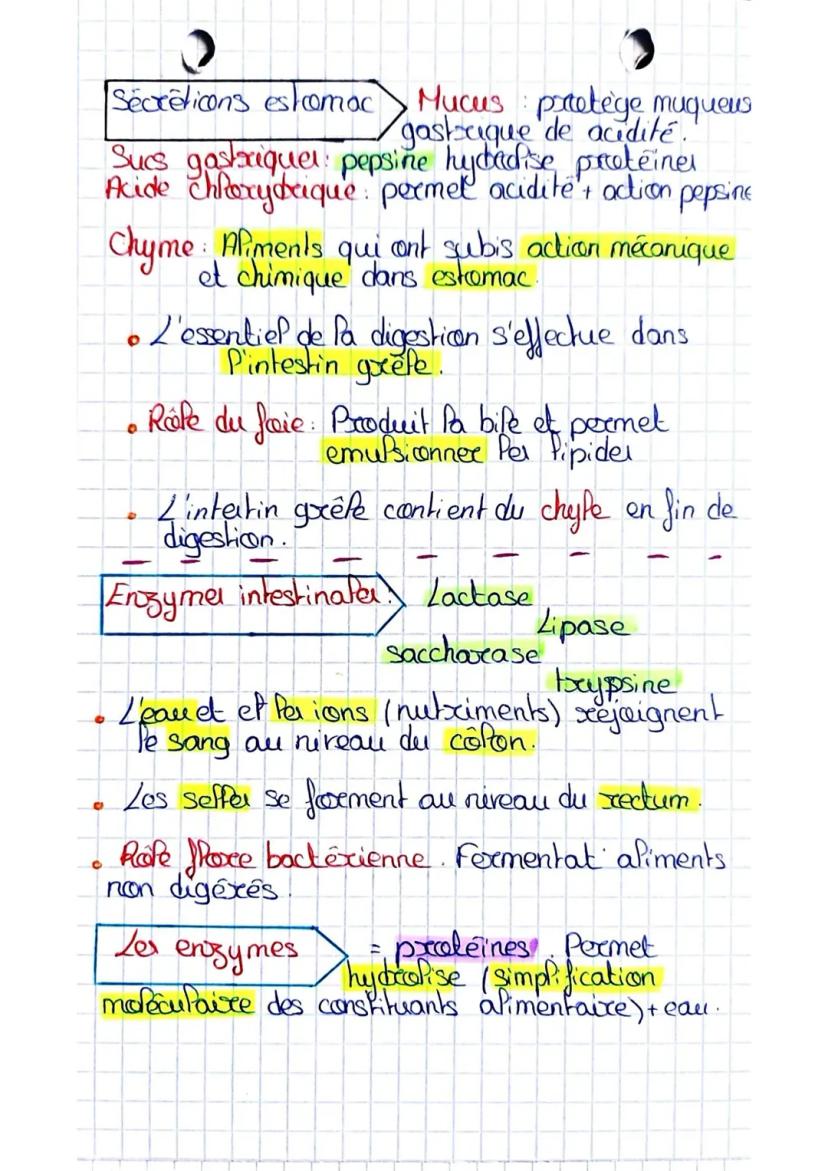 Sécrétions estomac
Mucus : protège muqueus
gastrique de acidité.
Sucs gastriques : pepsine hydrolise protéines
Acide chlorydrique : permet acidité + action pepsine
Chyme : Aliments qui ont subis action mécanique
et chimique dans estomac
• L'essentiel de la digestion s'effectue dans
l'intestin grêle.
• Rôle du foie : Produit la bile et permet
emulsionner les lipides
• L'intestin grêle contient du chyle en fin de
digestion.
Enzymes intestinales :
Lactase
Lipase
saccharase
trypsine
• L'eau et et les ions (nutriments) rejoignent
le sang au niveau du côlon.
• Les selles se forment au niveau du rectum.
• Rôle flore bactérienne. Fermentat° aliments
non digérés.
Les enzymes
= protéines. Permet
hydrolise (simplification
moléculaire des constituants alimentaire) + eau.